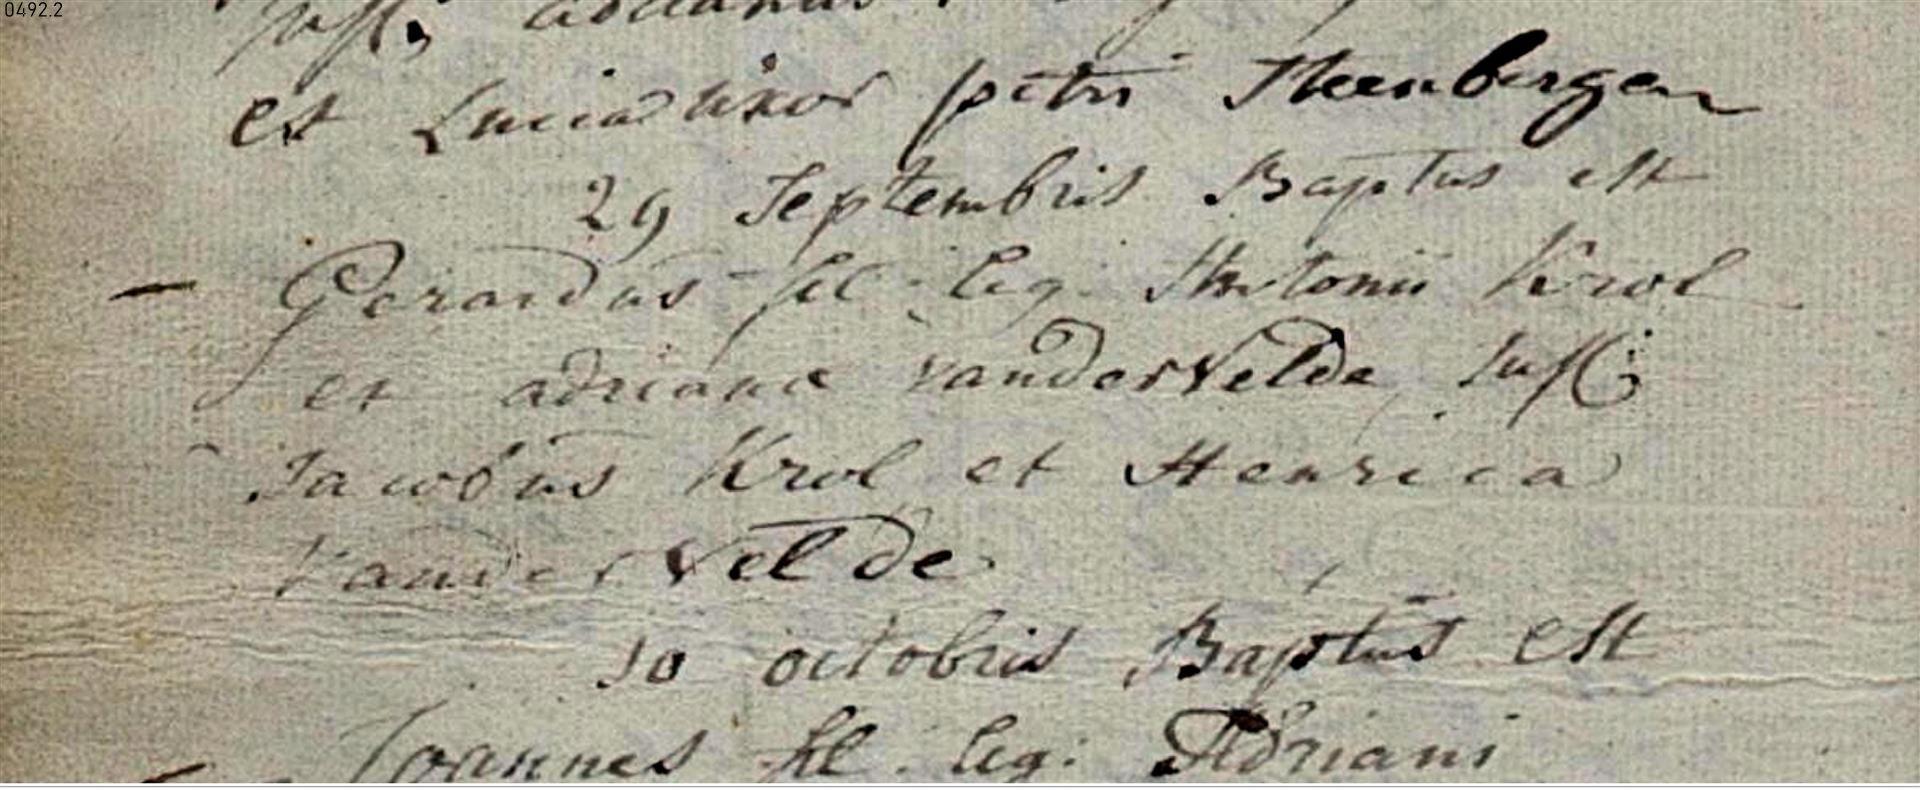 0492.2
et Lucia uxor petri Steenbergen
29 Septembris Baptus est
Gerardus fil. leg. Antonii Krol
et adriana vanderVelde, Suss:
Jacobus Krol et Henrica
Vander Velde
10 octobris Baptus est
Joannes fil. leg: Adriani